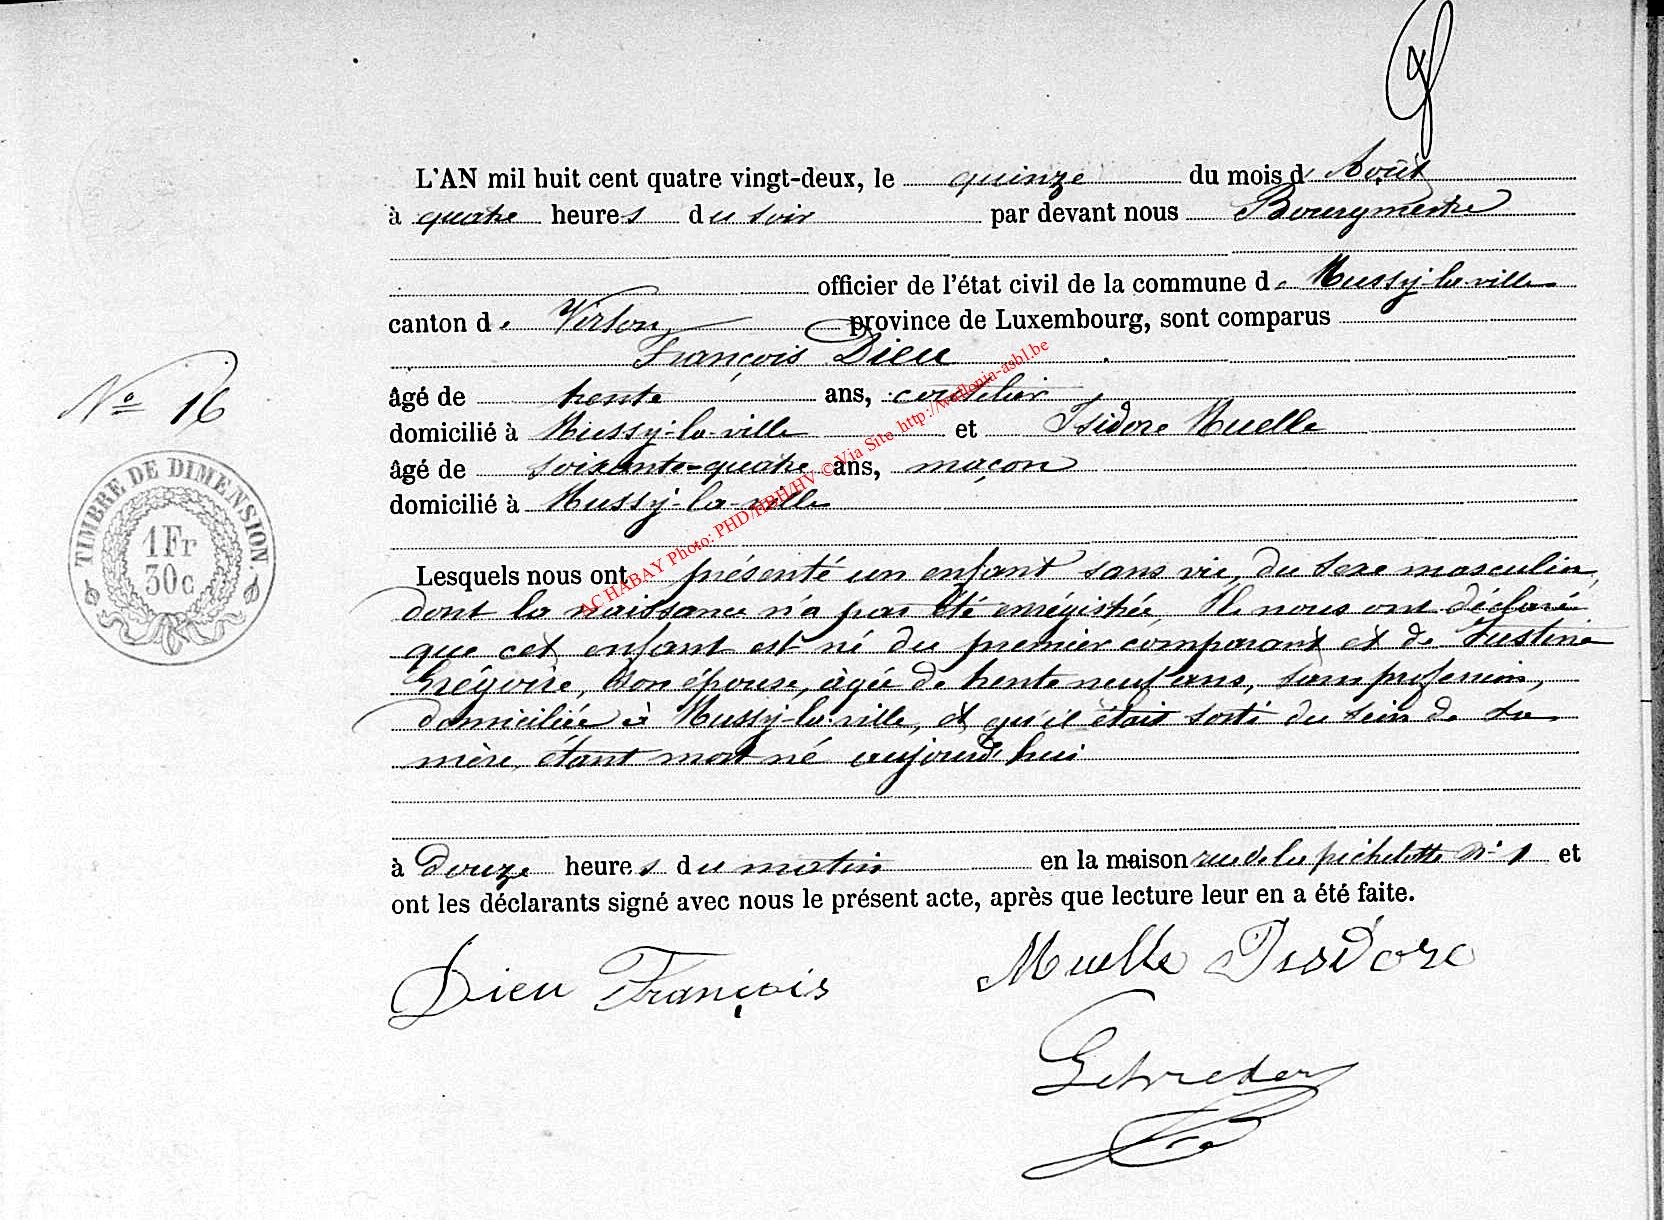 L'AN mil huit cent quatre vingt-deux, le quinze du mois d'Août
à quatre heures du soir par devant nous Bourgmestre
officier de l'état civil de la commune de Mussy-la-ville
canton de Virton, province de Luxembourg, sont comparus
François Dieu
âgé de trente ans, coutelier
domicilié à Mussy-la-ville et Isidore Muelle
âgé de soixante-quatre ans, maçon
domicilié à Mussy-la-ville
Lesquels nous ont présenté un enfant sans vie, du sexe masculin,
dont la naissance n'a pas été enrégistrée, Ils nous ont déclaré
que cet enfant est né du premier comparant et de Justine
Grégoire, son épouse, âgée de trente neuf ans, sans profession,
domiciliée à Mussy-la-ville, et qu'il était sorti du sein de sa
mère, étant mort né aujourd'hui
à douze heures du matin en la maison rue de la pichelotte N° 1 et
ont les déclarants signé avec nous le présent acte, après que lecture leur en a été faite.
Dieu François Muelle Isidore
N° 16
TIMBRE DE DIMENSION
1 Fr
30 c
AC HABAY Photo: PHD/HBH/HV © Via Site http://wallonia-asbl.be